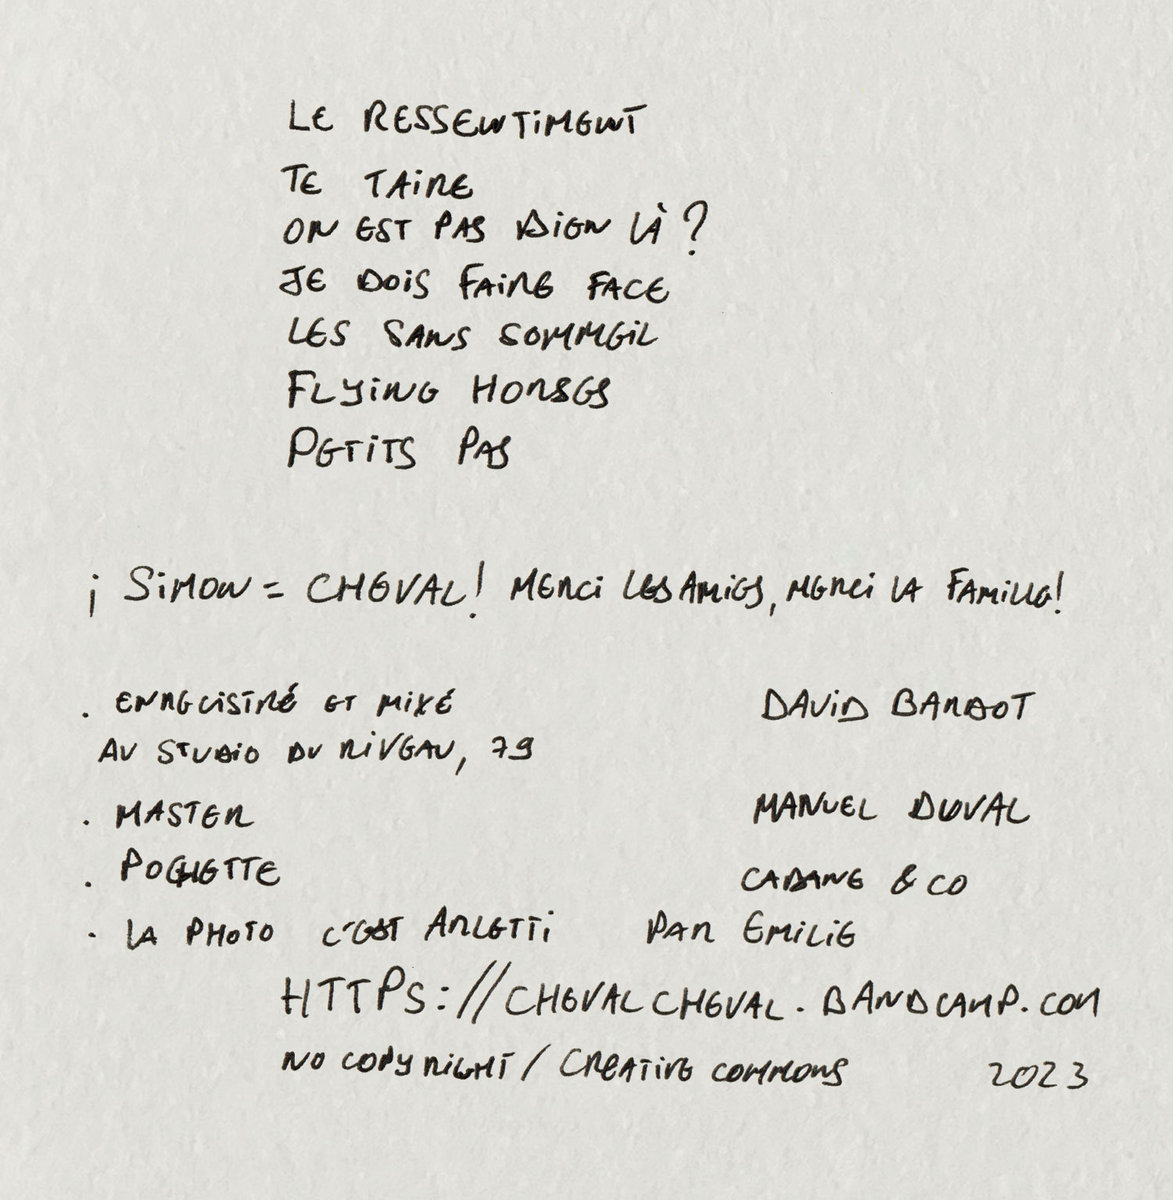 LE RESSENTIMENT
TE TAIRE
ON EST PAS BIEN LÀ ?
JE DOIS FAIRE FACE
LES SANS SOMMEIL
FLYING HORSES
PETITS PAS
¡ SIMON = CHEVAL ! MERCI LES AMIES, MERCI LA FAMILLE !
. ENREGISTRÉ ET MIXÉ DAVID BARBOT
AU STUDIO DU NIVEAU, 79
. MASTER MANUEL DUVAL
. POCHETTE CABANE & CO
. LA PHOTO C'EST ARLETTI PAR EMILIE
HTTPS://CHEVALCHEVAL.BANDCAMP.COM
NO COPYRIGHT / CREATIVE COMMONS 2023